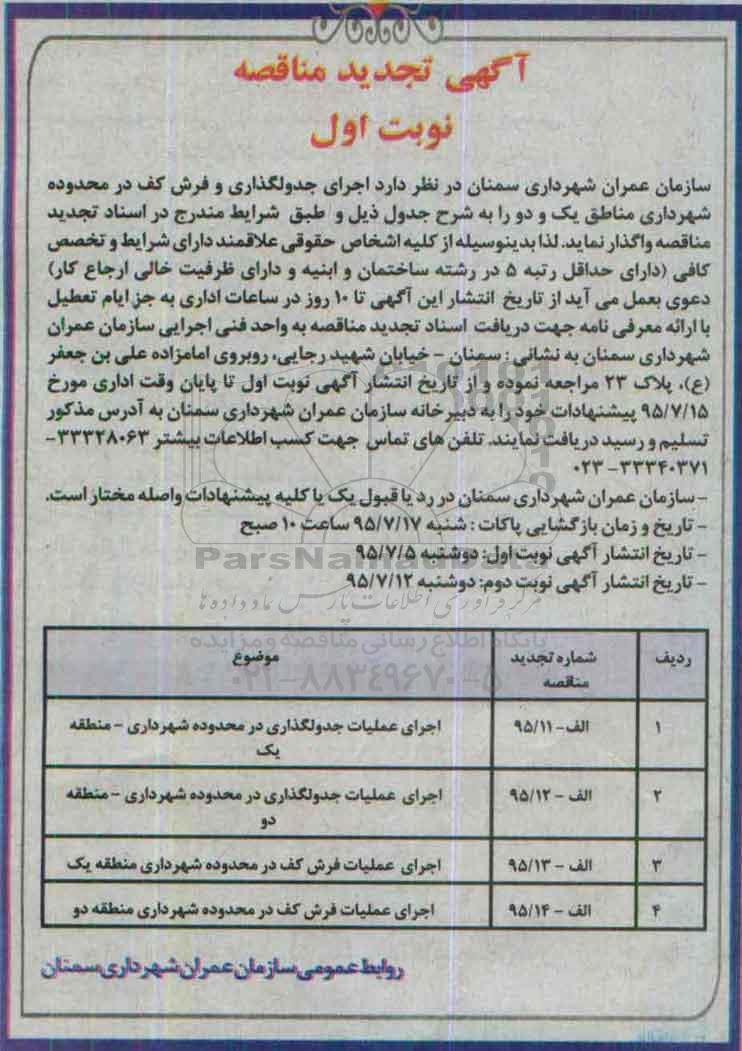 آگهی تجدید مناقصه
نوبت اول
سازمان عمران شهرداری سمنان در نظر دارد اجرای جدولگذاری و فرش کف در محدوده
شهرداری مناطق یک و دو را به شرح جدول ذیل و طبق شرایط مندرج در اسناد تجدید
مناقصه واگذار نماید. لذا بدینوسیله از کلیه اشخاص حقوقی علاقمند دارای شرایط و تخصص
کافی (دارای حداقل رتبه ۵ در رشته ساختمان و ابنیه و دارای ظرفیت خالی ارجاع کار)
دعوی بعمل می آید از تاریخ انتشار این آگهی تا ۱۰ روز در ساعات اداری به جز ایام تعطیل
با ارائه معرفی نامه جهت دریافت اسناد تجدید مناقصه به واحد فنی اجرایی سازمان عمران
شهرداری سمنان به نشانی : سمنان - خیابان شهید رجایی، روبروی امامزاده علی بن جعفر
(ع)، پلاک ۲۳ مراجعه نموده و از تاریخ انتشار آگهی نوبت اول تا پایان وقت اداری مورخ
۹۵/۷/۱۵ پیشنهادات خود را به دبیرخانه سازمان عمران شهرداری سمنان به آدرس مذکور
تسلیم و رسید دریافت نمایند. تلفن های تماس جهت کسب اطلاعات بیشتر ۳۳۳۲۸۰۶۳-
۰۲۳-۳۳۳۴۰۳۷۱
- سازمان عمران شهرداری سمنان در رد یا قبول یک یا کلیه پیشنهادات واصله مختار است.
- تاریخ و زمان بازگشایی پاکات : شنبه ۹۵/۷/۱۷ ساعت ۱۰ صبح
- تاریخ انتشار آگهی نوبت اول: دوشنبه ۹۵/۷/۵
- تاریخ انتشار آگهی نوبت دوم: دوشنبه ۹۵/۷/۱۲
ParsNamadData
مرکز فرآوری اطلاعات پارس نماد داده ها
پایگاه اطلاع رسانی مناقصه و مزایده
۰۲۱-۸۸۳۴۹۶۷۰-۵
ردیف شماره تجدید مناقصه موضوع
۱ الف- ۹۵/۱۱ اجرای عملیات جدولگذاری در محدوده شهرداری - منطقه
یک
۲ الف - ۹۵/۱۲ اجرای عملیات جدولگذاری در محدوده شهرداری - منطقه
دو
۳ الف - ۹۵/۱۳ اجرای عملیات فرش کف در محدوده شهرداری منطقه یک
۴ الف - ۹۵/۱۴ اجرای عملیات فرش کف در محدوده شهرداری منطقه دو
روابط عمومی سازمان عمران شهرداری سمنان